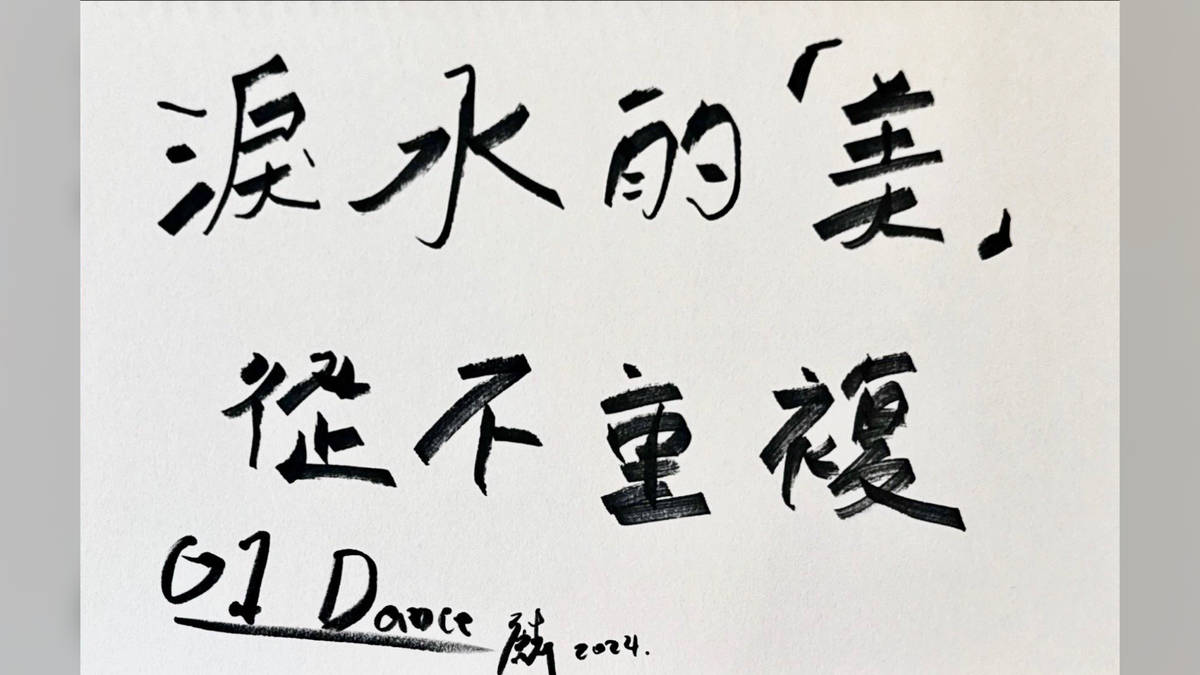 淚水的「美」
從不重複
01 Dance 麟 2024.